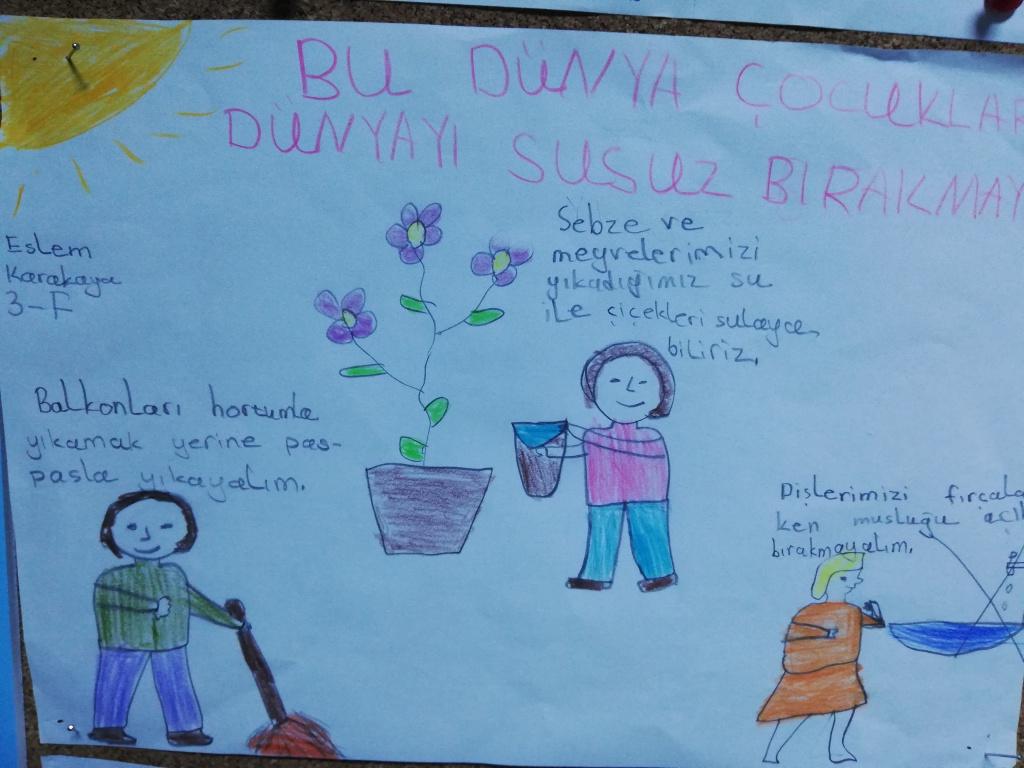 BU DÜNYA ÇOCUKLAR
DÜNYAYI SUSUZ BIRAKMAY
Eslem
Karakaya
3-F
Sebze ve
meyvelerimizi
yıkadığımız su
ile çiçekleri sulaya
biliriz.
Balkonları hortumla
yıkamak yerine pas-
pasla yıkayalım.
Dişlerimizi fırçala
ken musluğu açık
bırakmayalım.